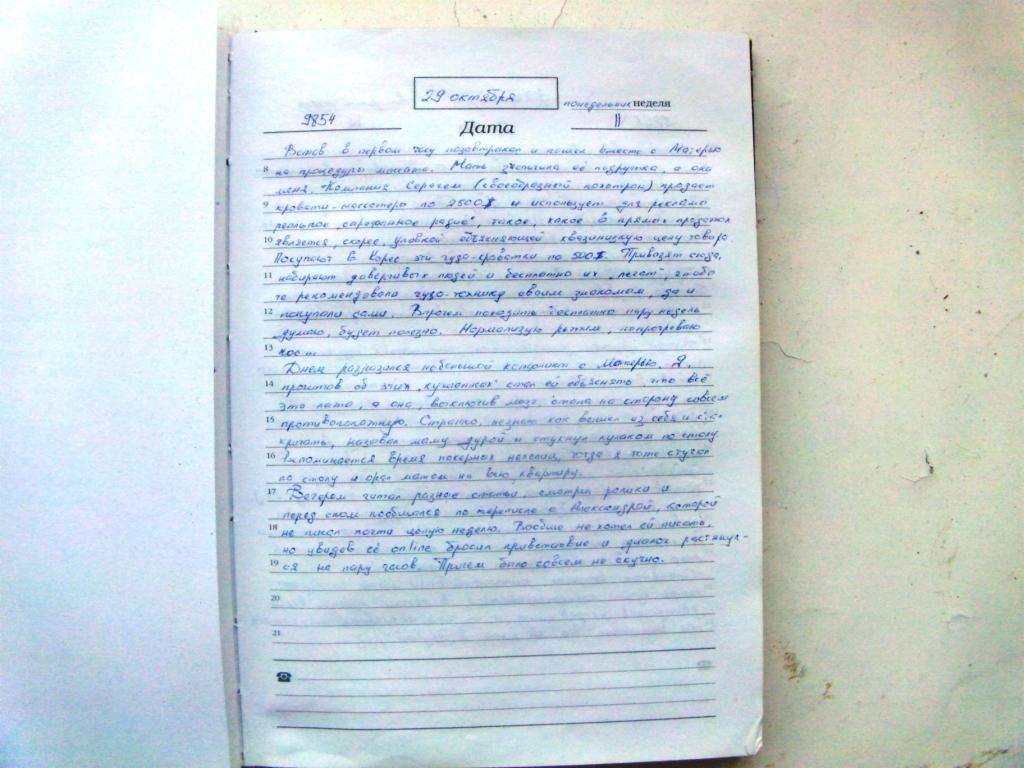 29 октября
понедельник неделя
9854 11
Дата
Встав в первом часу позавтракал и пошел вместе с Матерью
8 на процедуры массажа. Мать её подружка, а она
меня. Компания Серагем (своеобразный лохотрон) продает
9 кровати-массажеры по 2500$ и использует для рекламы
реальное „сарафанное радио", такое, какое в прямых продажах
10 является, скорее, уловкой объясняющей цену товара.
Покупают в Корее эти чудо-кроватки по 500$. Привозят сюда,
11 набирают доверчивых людей и бесплатно их „лечат", чтобы
те рекомендовали чудо-технику своим знакомым, да и
12 покупали сами. Впрочем походить бесплатно пару недель
думаю, будет полезно. Нормализую режим,
13
Днем разразился небольшой конфликт с Матерью. Я,
14 об этих „кушетках" стал ей объяснять, что всё
это лажа, а она, выключив мозг стала на сторону совсем
15 противоположную. Странно, незнаю как вышел из себя и стал
кричать, назвал маму дурой и стукнул кулаком по столу
16 Вспоминается время покерных когда я тоже стучал
по столу и орал матом на всю квартиру.
17 Вечером читал разные статьи, смотрел ролики и
перед сном пообщался по переписке с Александрой, которой
18 не писал почти целую неделю. Вообще не хотел ей писать,
но увидев её online бросил приветствие и диалог растянул-
19 ся на пару часов. Причем было совсем не скучно.
20
21